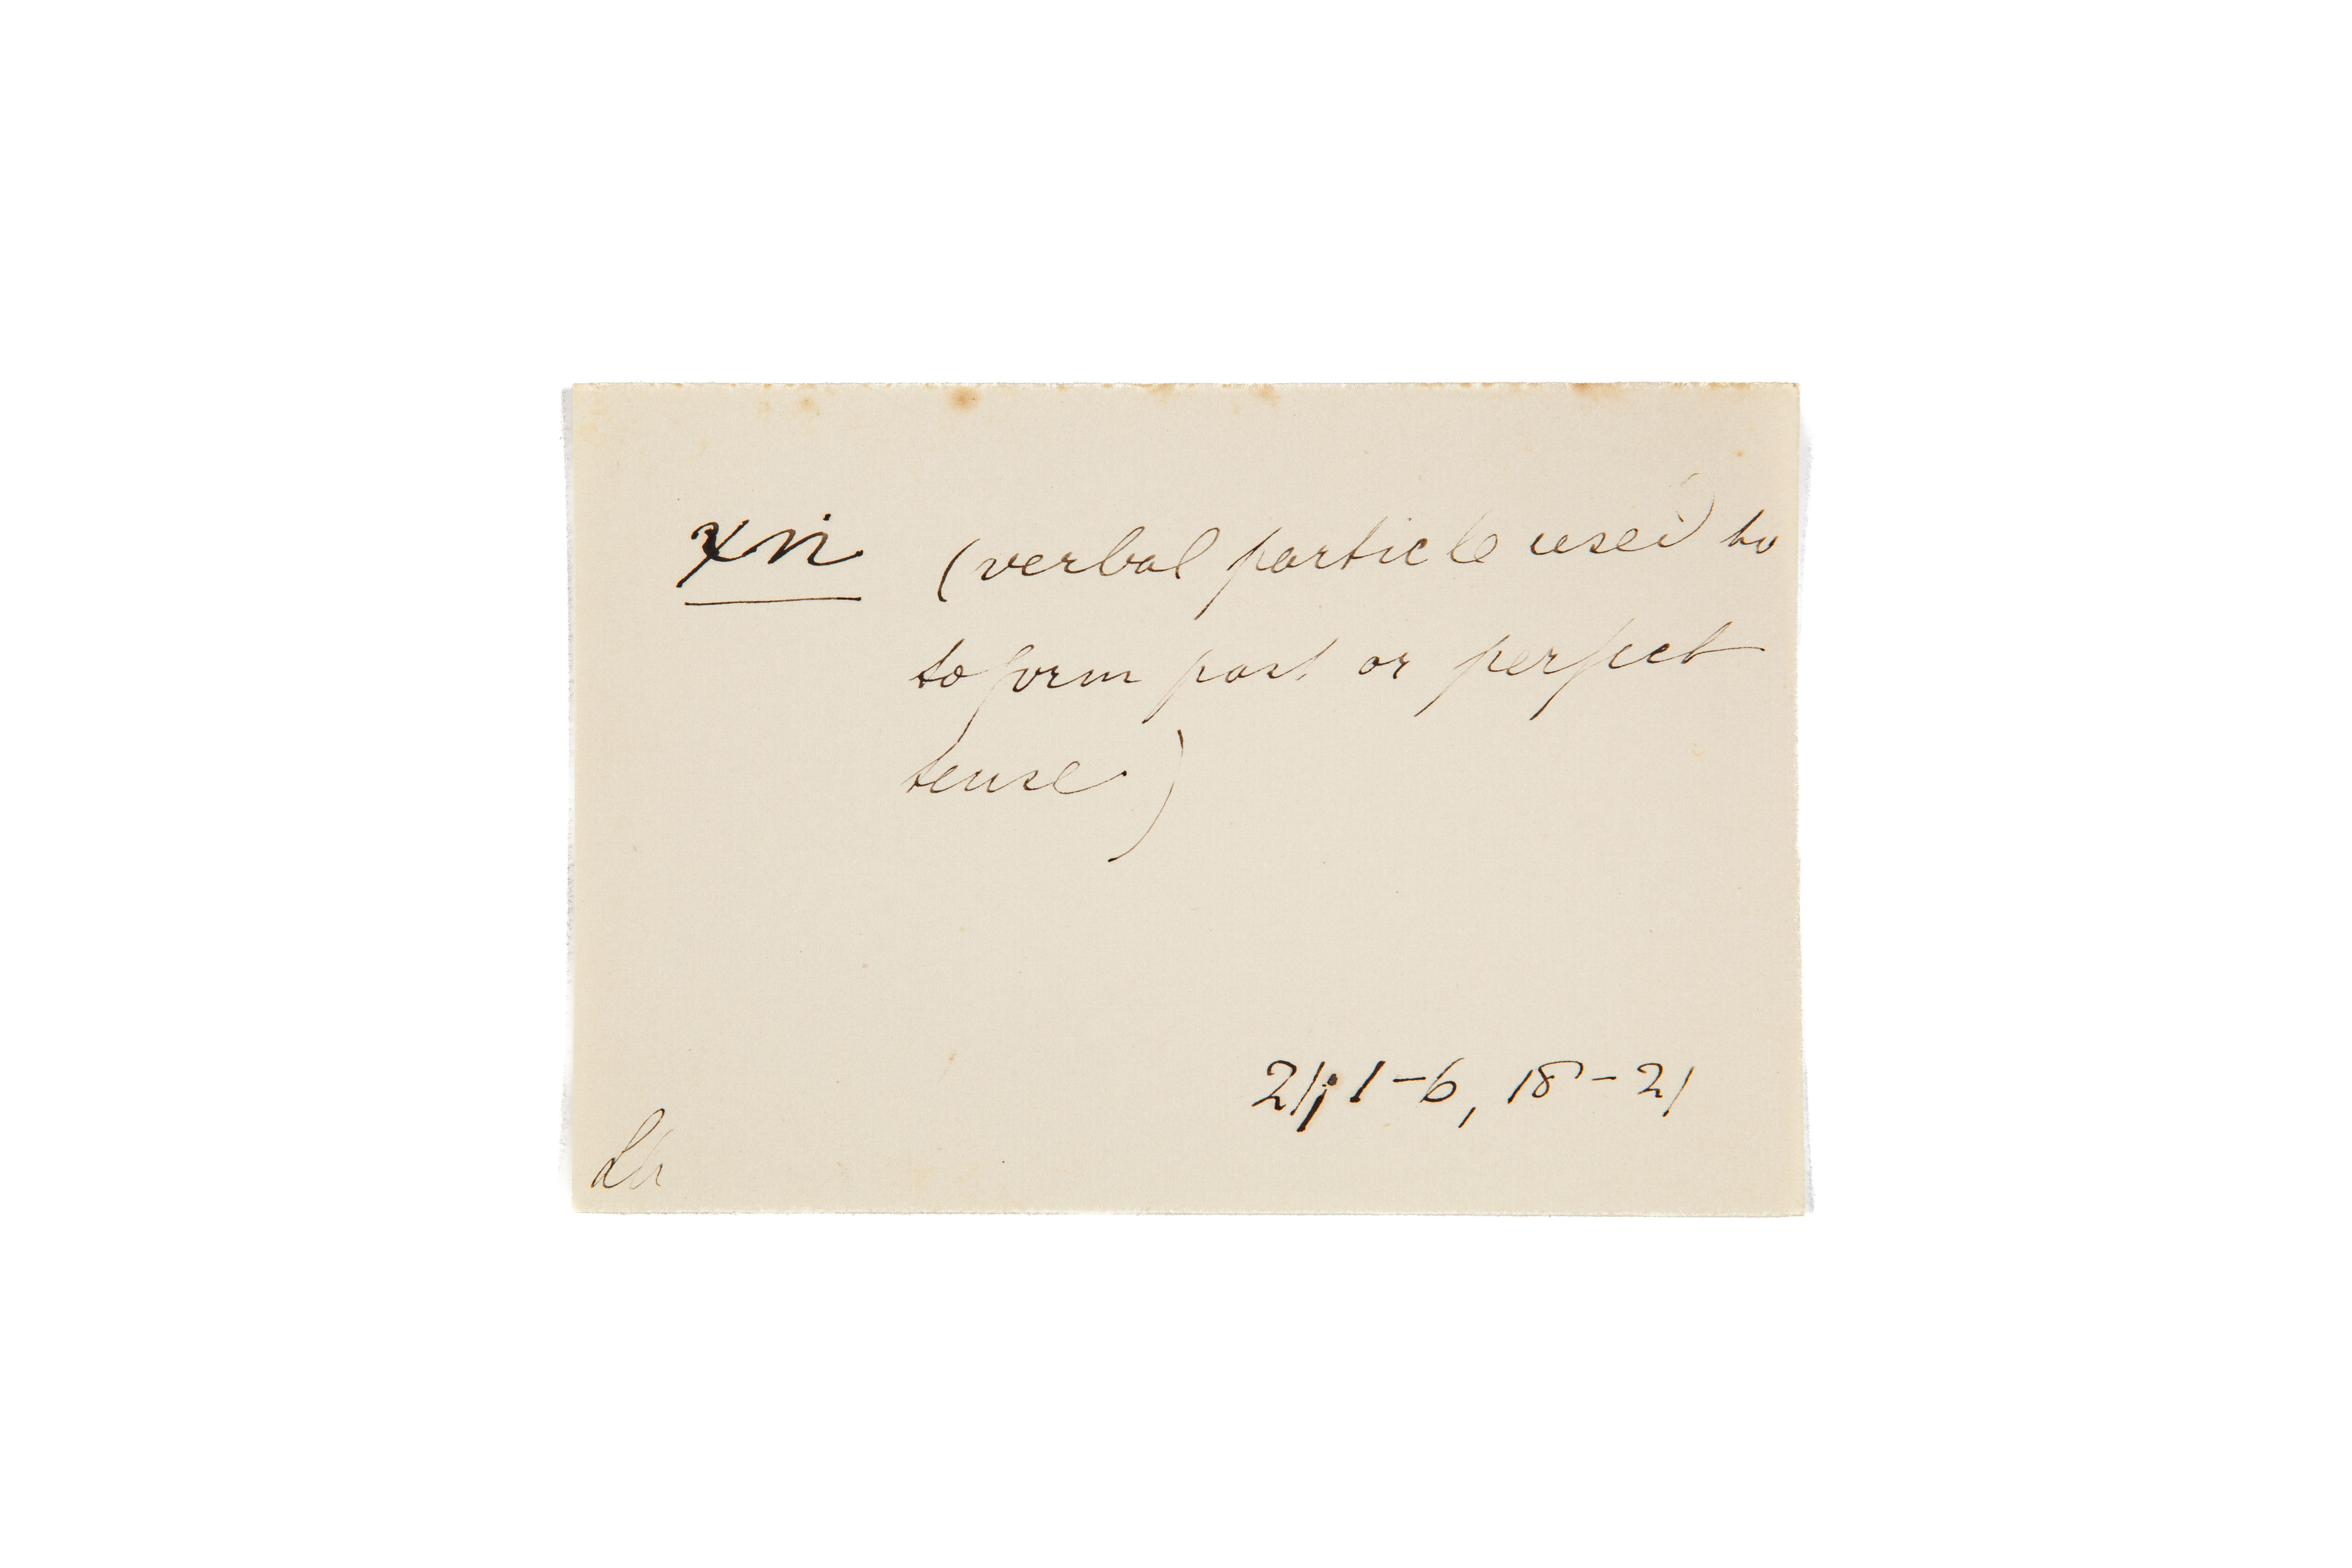 xni (verbal particle used to
to form past or perfect
tense)
21; 1-6, 18-21